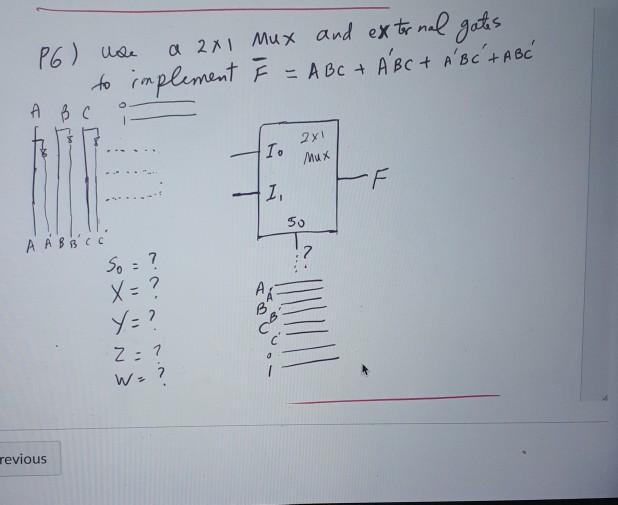 P6) use a 2x1 Mux and external gates
to implement F̅ = ABC + A'BC + A'BC' + ABC'
A B C
0
1
A A' B B' C C'
I0 2x1 Mux
I1
F
S0
?
S0 = ?
X = ?
Y = ?
Z = ?
W = ?
A
A'
B
B'
C
C'
0
1
revious